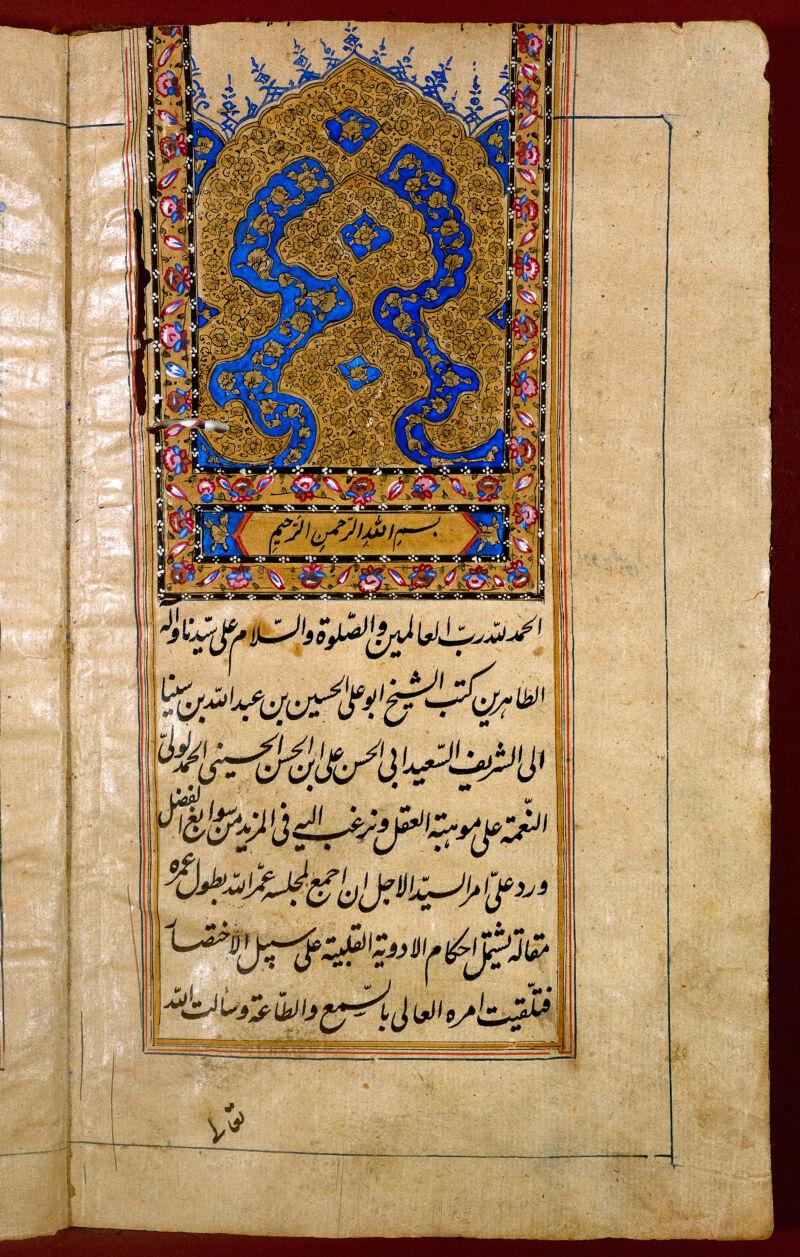 بسم الله الرحمن الرحیم
الحمد لله ربّ العالمین والصّلوة والسّلام علی سیّدنا واله
الطاهرین کتب الشیخ ابو علی الحسین بن عبد الله بن سینا
الی الشریف السّعید ابی الحسن علی ابن الحسن الحسینی الحمد لولیّ
النّعمة علی موهبته العقل ونرغب الیه فی المزید من سوابغ الفضل
ورد علیّ امر السیّد الاجل ان اجمع لمجلسه عمّر الله بطول عمره
مقالة تشتمل احکام الادویة القلبیة علی سبیل الاختصار
فتلقّیت امره العالی بالسّمع والطّاعة وسألت الله
تعالی